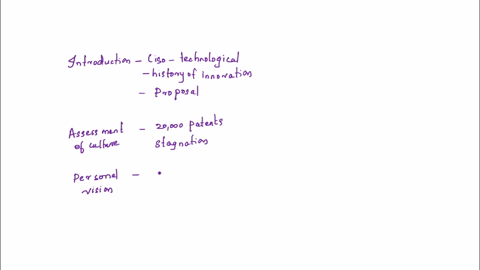 Introduction - Ciso - technological
- history of Innovation
- Proposal
Assessment - 20,000 patents
of culture stagnation
Personal -
vision